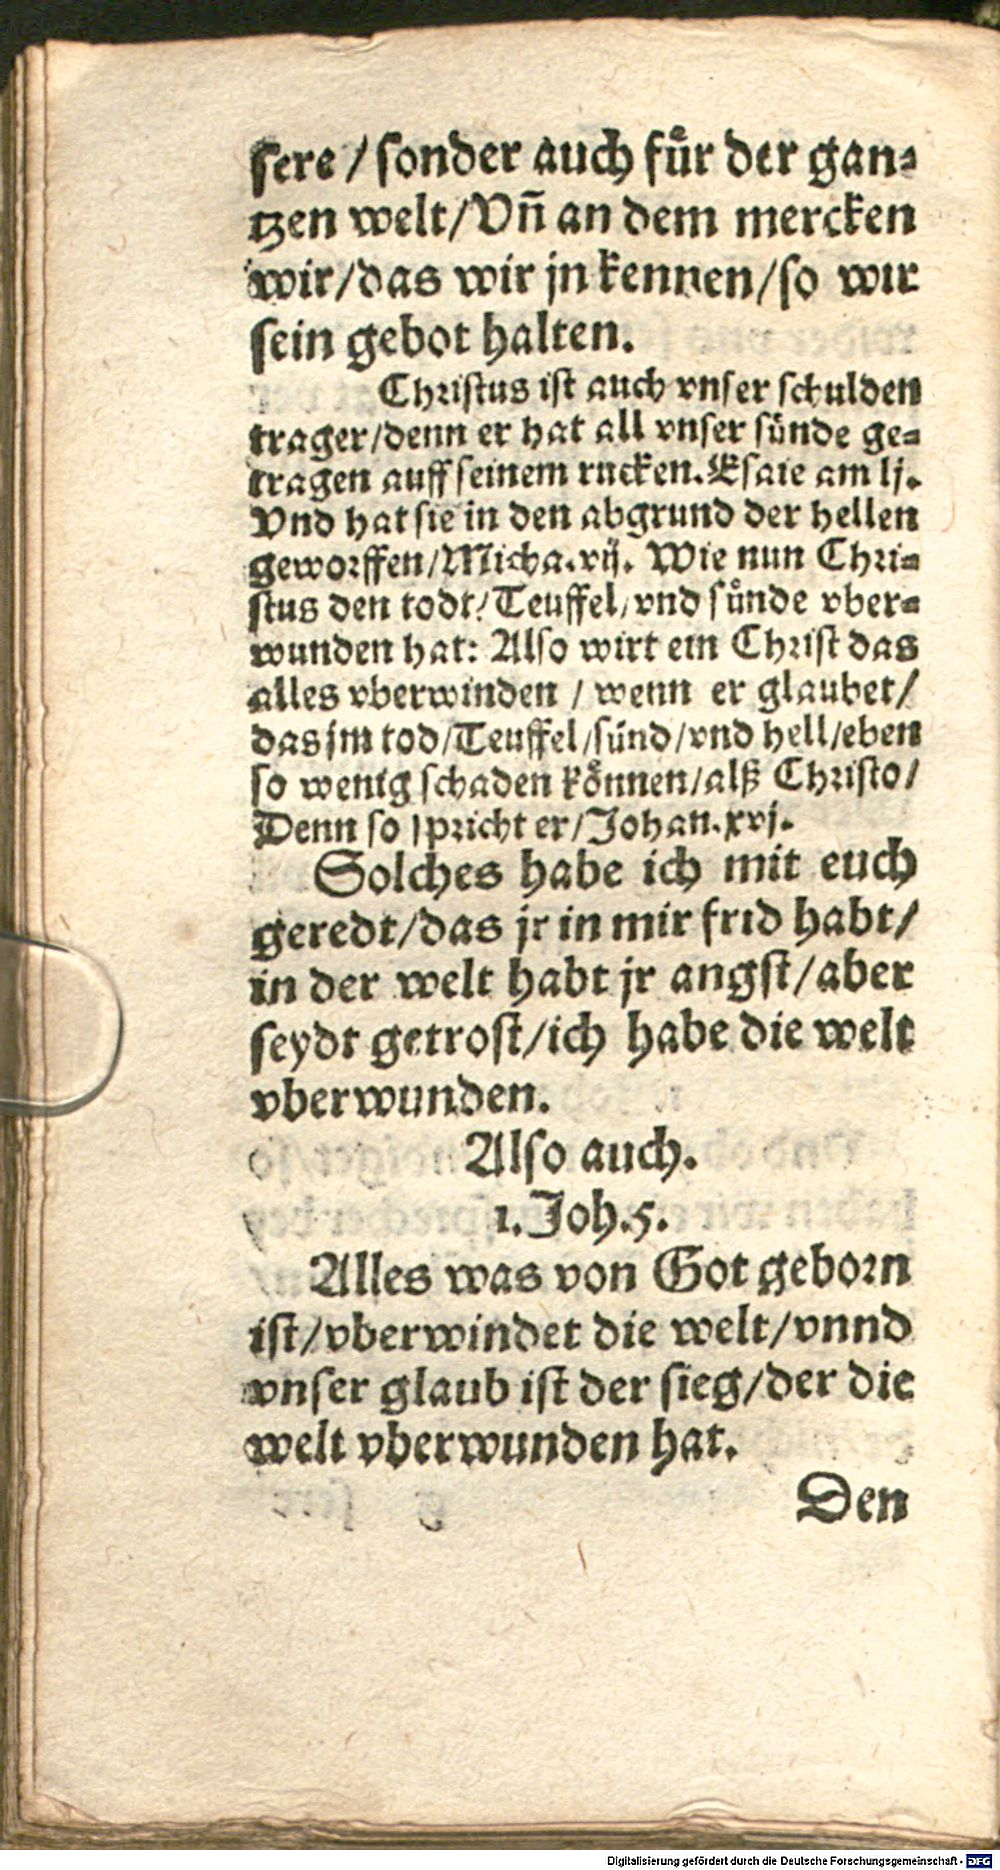 sere / sonder auch für der gan⸗
tzen welt/Vñ an dem mercken
wir/das wir jn kennen/so wir
sein gebot halten.
Christus ist auch vnser schulden
trager/denn er hat all vnser sünde ge⸗
tragen auff seinem rucken. Esaie am lj.
Vnd hat sie in den abgrund der hellen
geworffen/Micha.vij. Wie nun Chri⸗
stus den todt/Teuffel/vnd sünde vber⸗
wunden hat: Also wirt ein Christ das
alles vberwinden / wenn er glaubet/
das jm tod/Teuffel/sünd/vnd hell/eben
so wenig schaden können/alß Christo/
Denn so spricht er/Johan.xvj.
Solches habe ich mit euch
geredt/das jr in mir frid habt/
in der welt habt jr angst/aber
seydt getrost/ich habe die welt
vberwunden.
Also auch.
1.Joh.5.
Alles was von Got geborn
ist/vberwindet die welt/vnnd
vnser glaub ist der sieg/der die
welt vberwunden hat.
Den
Digitalisierung gefördert durch die Deutsche Forschungsgemeinschaft - DFG